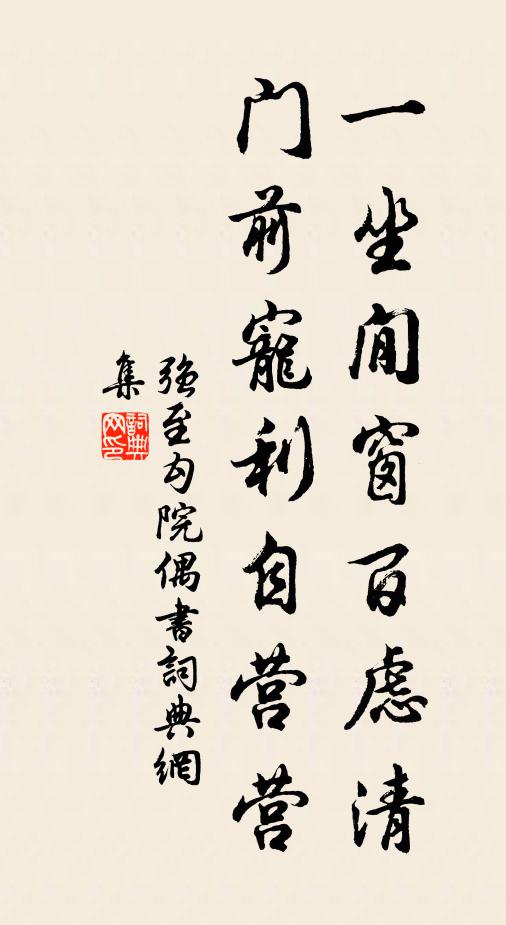 一坐閒窗百慮清
门前寵利自营营
强至勾院偶書詞典網
集
詞典
网印